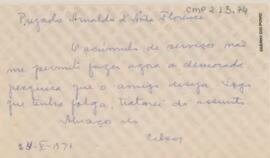 CMP 2.1.3.74
Prezado Arnaldo d'Ávila Florence
O acúmulo de serviços não
me permiti fazer agora a demorada
pesquisa que o amigo deseja. Logo
que tenha folga, tratarei do assunto
Abraço do
Celso
24-XI-1971